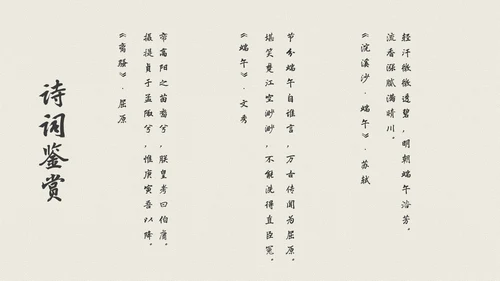 轻汗微微透碧，明朝端午浴芳。
流香涨腻满晴川。
《浣溪沙·端午》·苏轼
节分端午自谁言，万古传闻为屈原。
堪笑楚江空渺渺，不能洗得直臣冤。
《端午》·文秀
帝高阳之苗裔兮，朕皇考曰伯庸。
摄提贞于孟陬兮，惟庚寅吾以降。
《离骚》·屈原
诗词鉴赏